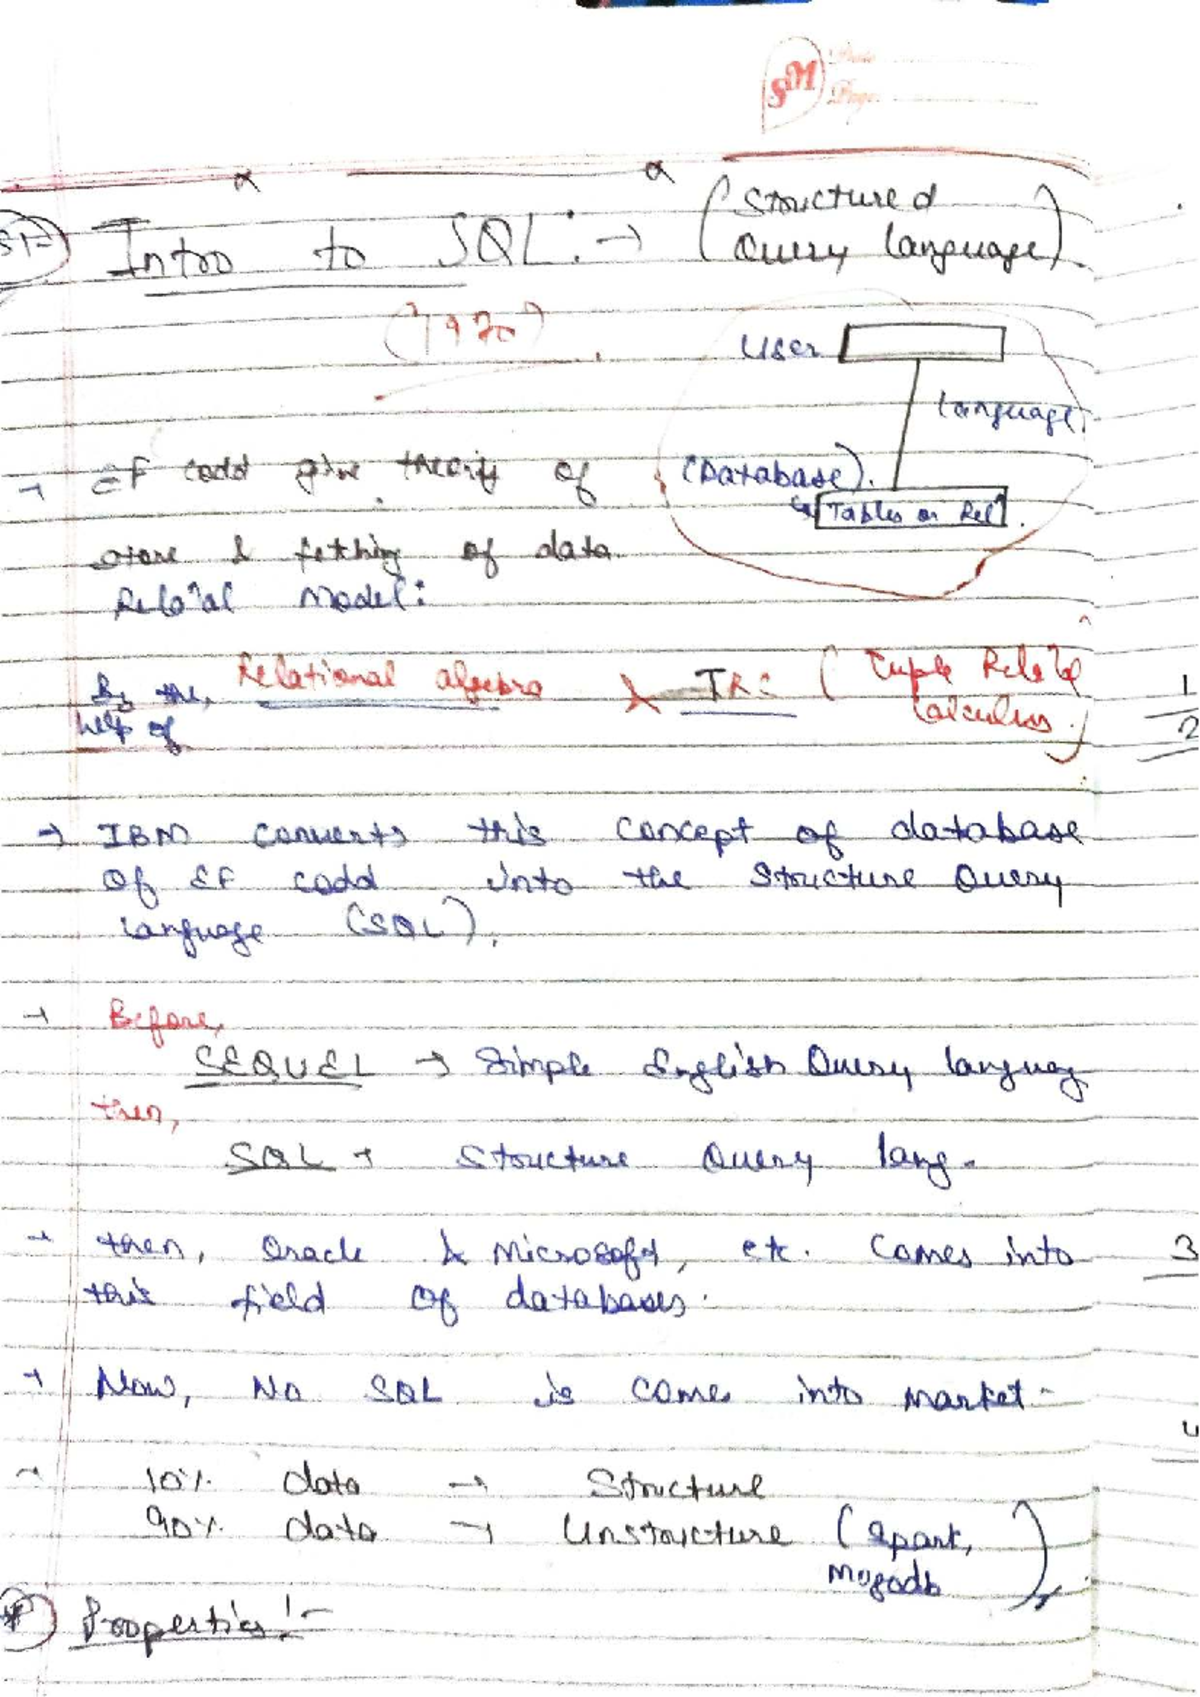 SM Date
Page
51-)
Intro to SQL :→ (Structured
Query language)
(1970)
User
language
→ EF codd give theory of (Database).
↳ Tables or Relⁿ
store & fetching of data
Relaⁿal Model:
By the, Relational algebra & TRC (Tuple Relaⁿal
help of Calculus)
1
2
→ IBM converts this concept of database
of EF codd into the Structure Query
language (SQL).
→ Before,
SEQUEL → Simple English Query languag
then,
SQL → Structure Query lang.
→ then, Oracle & Microsoft, etc. comes into
this field of databases.
3
→ Now, No SQL is come into market -
4
→ 10% data → Structure
90% data → Unstructure (spark,
mogodb)
* Properties :-